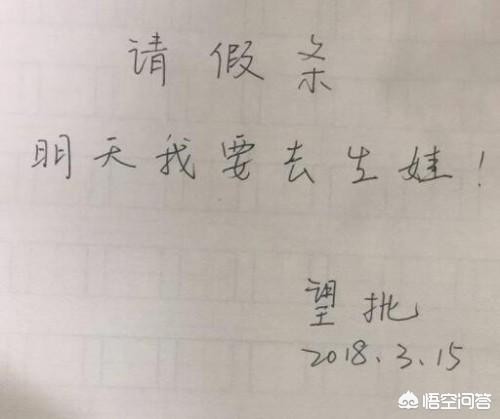 请假条
明天我要去生娃!
望批
2018.3.15
悟空问答